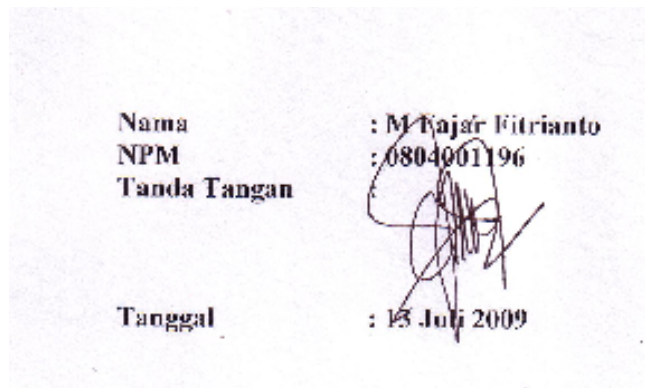 Nama : M Fajar Fitrianto
NPM : 0804001196
Tanda Tangan :
Tanggal : 13 Juli 2009